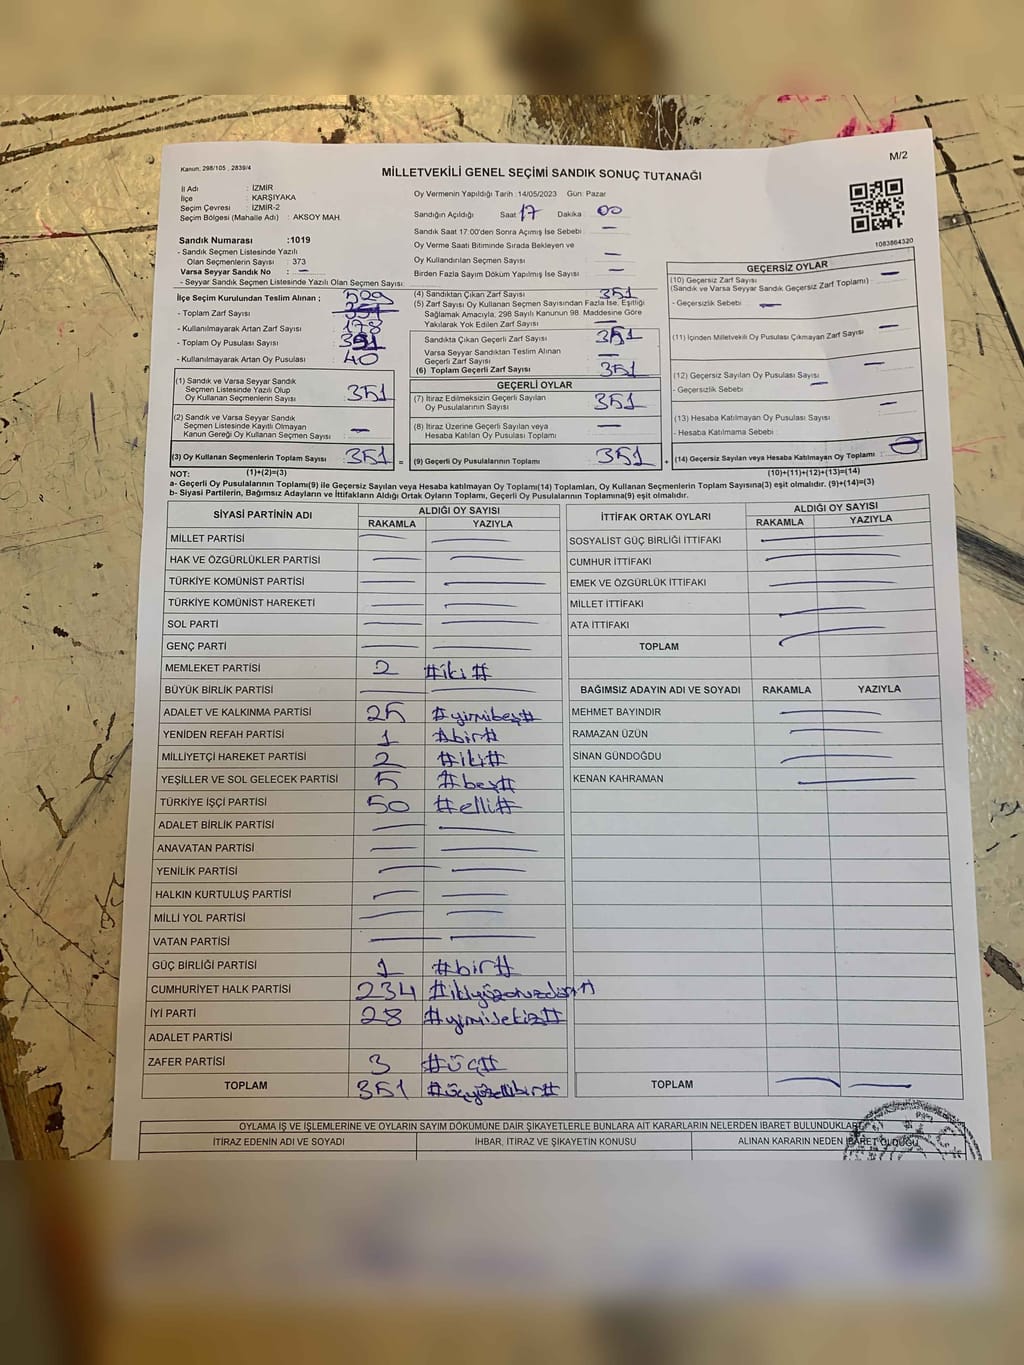 M/2
Kanun: 298/105 , 2839/4
MİLLETVEKİLİ GENEL SEÇİMİ SANDIK SONUÇ TUTANAĞI
İl Adı : İZMİR
İlçe : KARŞIYAKA
Seçim Çevresi : İZMİR-2
Seçim Bölgesi (Mahalle Adı) : AKSOY MAH.
Sandık Numarası :1019
- Sandık Seçmen Listesinde Yazılı
Olan Seçmenlerin Sayısı : 373
Varsa Seyyar Sandık No : —
- Seyyar Sandık Seçmen Listesinde Yazılı Olan Seçmen Sayısı:
Oy Vermenin Yapıldığı Tarih : 14/05/2023 Gün: Pazar
Sandığın Açıldığı Saat 17 Dakika 00
Sandık Saat 17:00'den Sonra Açımış İse Sebebi : —
Oy Verme Saati Bitiminde Sırada Bekleyen ve
Oy Kullandırılan Seçmen Sayısı : —
Birden Fazla Sayım Döküm Yapılmış İse Sayısı : —
1083864320
İlçe Seçim Kurulundan Teslim Alınan ;
- Toplam Zarf Sayısı :
- Kullanılmayarak Artan Zarf Sayısı : 178
- Toplam Oy Pusulası Sayısı :
- Kullanılmayarak Artan Oy Pusulası : 40
(1) Sandık ve Varsa Seyyar Sandık
Seçmen Listesinde Yazılı Olup
Oy Kullanan Seçmenlerin Sayısı : 351
(2) Sandık ve Varsa Seyyar Sandık
Seçmen Listesinde Kayıtlı Olmayan
Kanun Gereği Oy Kullanan Seçmen Sayısı : —
(3) Oy Kullanan Seçmenlerin Toplam Sayısı : 351 =
(4) Sandıktan Çıkan Zarf Sayısı : 351
(5) Zarf Sayısı Oy Kullanan Seçmen Sayısından Fazla İse, Eşitliği
Sağlamak Amacıyla, 298 Sayılı Kanunun 98. Maddesine Göre
Yakılarak Yok Edilen Zarf Sayısı : —
Sandıkta Çıkan Geçerli Zarf Sayısı : 351
Varsa Seyyar Sandıktan Teslim Alınan
Geçerli Zarf Sayısı : —
(6) Toplam Geçerli Zarf Sayısı : 351
GEÇERLİ OYLAR
(7) İtiraz Edilmeksizin Geçerli Sayılan
Oy Pusulalarının Sayısı : 351
(8) İtiraz Üzerine Geçerli Sayılan veya
Hesaba Katılan Oy Pusulası Toplamı : —
(9) Geçerli Oy Pusulalarının Toplamı : 351 +
GEÇERSİZ OYLAR
(10) Geçersiz Zarf Sayısı : —
(Sandık ve Varsa Seyyar Sandık Geçersiz Zarf Toplamı)
- Geçersizlik Sebebi : —
(11) İçinden Milletvekili Oy Pusulası Çıkmayan Zarf Sayısı : —
(12) Geçersiz Sayılan Oy Pusulası Sayısı : —
- Geçersizlik Sebebi : —
(13) Hesaba Katılmayan Oy Pusulası Sayısı : —
- Hesaba Katılmama Sebebi :
(14) Geçersiz Sayılan veya Hesaba Katılmayan Oy Toplamı :
NOT: (1)+(2)=(3) (10)+(11)+(12)+(13)=(14)
a- Geçerli Oy Pusulalarının Toplamı(9) ile Geçersiz Sayılan veya Hesaba katılmayan Oy Toplamı(14) Toplamları, Oy Kullanan Seçmenlerin Toplam Sayısına(3) eşit olmalıdır. (9)+(14)=(3)
b- Siyasi Partilerin, Bağımsız Adayların ve İttifakların Aldığı Ortak Oyların Toplamı, Geçerli Oy Pusulalarının Toplamına(9) eşit olmalıdır.
SİYASİ PARTİNİN ADI ALDIĞI OY SAYISI
RAKAMLA YAZIYLA
MİLLET PARTİSİ
HAK VE ÖZGÜRLÜKLER PARTİSİ
TÜRKİYE KOMÜNİST PARTİSİ
TÜRKİYE KOMÜNİST HAREKETİ
SOL PARTİ
GENÇ PARTİ
MEMLEKET PARTİSİ 2 #iki#
BÜYÜK BİRLİK PARTİSİ
ADALET VE KALKINMA PARTİSİ 25 #yirmibeş#
YENİDEN REFAH PARTİSİ 1 #bir#
MİLLİYETÇİ HAREKET PARTİSİ 2 #iki#
YEŞİLLER VE SOL GELECEK PARTİSİ 5 #beş#
TÜRKİYE İŞÇİ PARTİSİ 50 #elli#
ADALET BİRLİK PARTİSİ
ANAVATAN PARTİSİ
YENİLİK PARTİSİ
HALKIN KURTULUŞ PARTİSİ
MİLLİ YOL PARTİSİ
VATAN PARTİSİ
GÜÇ BİRLİĞİ PARTİSİ 1 #bir#
CUMHURİYET HALK PARTİSİ 234 #ikiyüzotuzdört#
İYİ PARTİ 28 #yirmisekiz#
ADALET PARTİSİ
ZAFER PARTİSİ 3 #üç#
TOPLAM 351 #üçyüzellibir#
İTTİFAK ORTAK OYLARI ALDIĞI OY SAYISI
RAKAMLA YAZIYLA
SOSYALİST GÜÇ BİRLİĞİ İTTİFAKI
CUMHUR İTTİFAKI
EMEK VE ÖZGÜRLÜK İTTİFAKI
MİLLET İTTİFAKI
ATA İTTİFAKI
TOPLAM
BAĞIMSIZ ADAYIN ADI VE SOYADI RAKAMLA YAZIYLA
MEHMET BAYINDIR
RAMAZAN ÜZÜN
SİNAN GÜNDOĞDU
KENAN KAHRAMAN
TOPLAM
OYLAMA İŞ VE İŞLEMLERİNE VE OYLARIN SAYIM DÖKÜMÜNE DAİR ŞİKAYETLERLE BUNLARA AİT KARARLARIN NELERDEN İBARET BULUNDUKLARI
İTİRAZ EDENİN ADI VE SOYADI İHBAR, İTİRAZ VE ŞİKAYETİN KONUSU ALINAN KARARIN NEDEN İBARET OLDUĞU